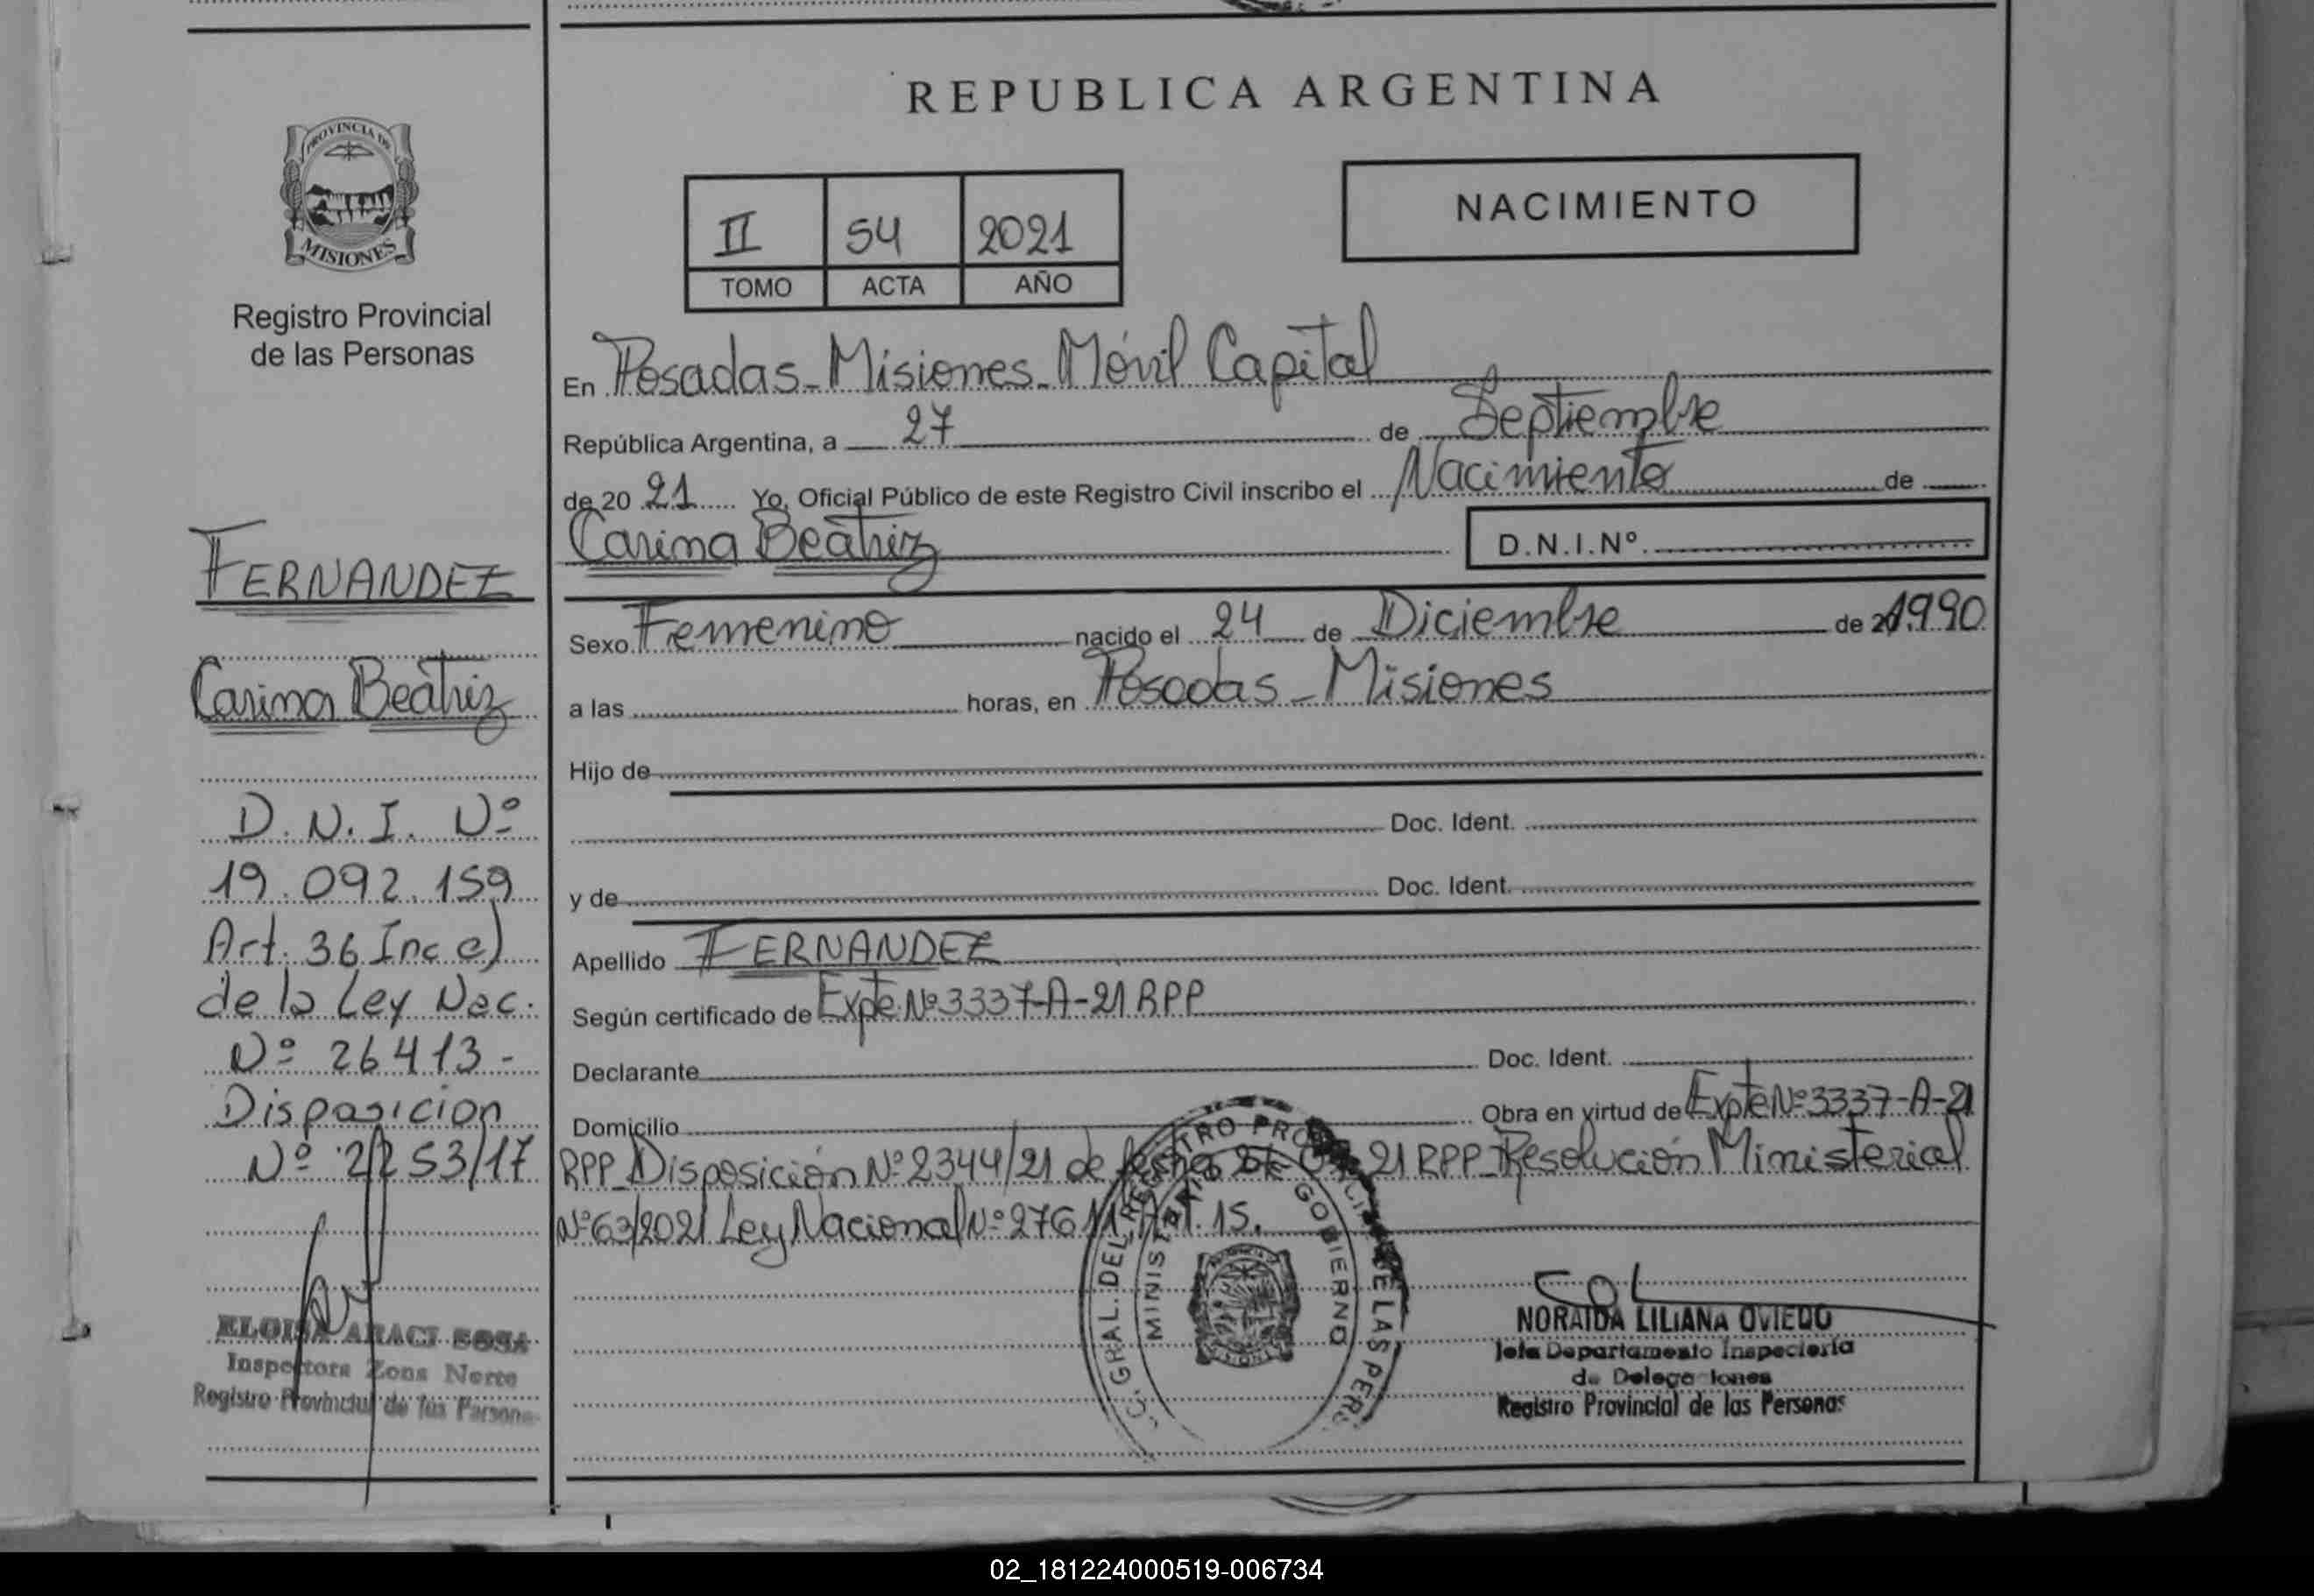 PROVINCIA DE
MISIONES
Registro Provincial
de las Personas
FERNANDEZ
Carina Beatriz
D.N.I. Nº
19.092.159
Art. 36 Inc c)
de la Ley Nac.
Nº 26413-
Disposicion
Nº 2253/17
ELOISA ARACI SOSA
Inspectora Zona Norte
Registro Provincial de las Persona
REPUBLICA ARGENTINA
II 54 2021
TOMO ACTA AÑO
NACIMIENTO
En Posadas_Misiones_Móvil Capital
República Argentina, a 27 de Septiembre
de 20 21 Yo, Oficial Público de este Registro Civil inscribo el Nacimiento de
Carina Beatriz D.N.I.Nº
Sexo Femenino nacido el 24 de Diciembre de 1990
a las horas, en Posadas_Misiones
Hijo de
Doc. Ident.
y de Doc. Ident.
Apellido FERNANDEZ
Según certificado de Expte.Nº3337-A-21 RPP
Declarante Doc. Ident.
Domicilio Obra en virtud de Expte Nº3337-A-21
RPP_Disposición Nº2344/21 de fecha 21 RPP_Resolución Ministerial
Nº63/2021 Ley Nacional Nº27611 Art. 15.
GRAL. DEL REGISTRO PROVINCIAL DE LAS PERS
MINISTERIO DE GOBIERNO
NORAIDA LILIANA OVIEDO
Jefa Departamento Inspectoría
de Delegaciones
Registro Provincial de las Personas
02_181224000519-006734